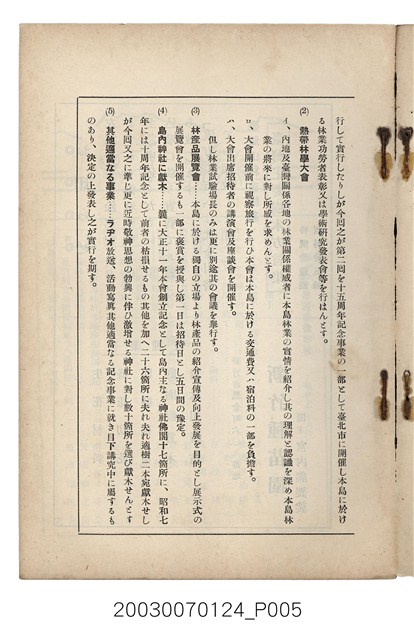 行して實行したりしが今回之が第二回を十五周年記念事業の一部として臺北市に開催し本島に於け
る林業功勞者表彰又は學術研究發表會等を行はんとす。
(2) 熱帶林學大會
イ、內地及臺灣關係各地の林業關係權威者に本島林業の實情を紹介し其の理解と認識を深め本島林
業の將來に對し所感を求めんとす。
ロ、大會開催前に視察旅行を行ひ本會は本島に於ける交通費又ハ宿泊料の一部を負擔す。
ハ、大會出席招待者の講演會及座談會を開催す。
但し林業試驗場長のみは更に別途其の會議を擧行す。
(3) 林產品展覽會……本島に於ける獨自の立場より林產品の紹介宣傳及向上發展を目的とし展示式の
展覽會を開催するも一部に褒賞を授與し第一日は招待日とし五日間の豫定。
(4) 島內神社に獻木……曩に大正十一年本會創立記念として島內主なる神社佛閣十七箇所に、昭和七
年には十周年記念として前者の枯損せるもの其他を加へ二十六箇所に夫れ夫れ適樹二本宛獻木せし
が今回又之に準じ更に近時敬神思想の勃興に伴ひ激增せる神社に對し數十箇所を選び獻木せんとす
(5) 其他適當なる事業……ラヂオ放送、活動寫眞其他適當なる記念事業に就き目下講究中に屬するも
のあり、決定の上發表し之が實行を期す。
20030070124_P005